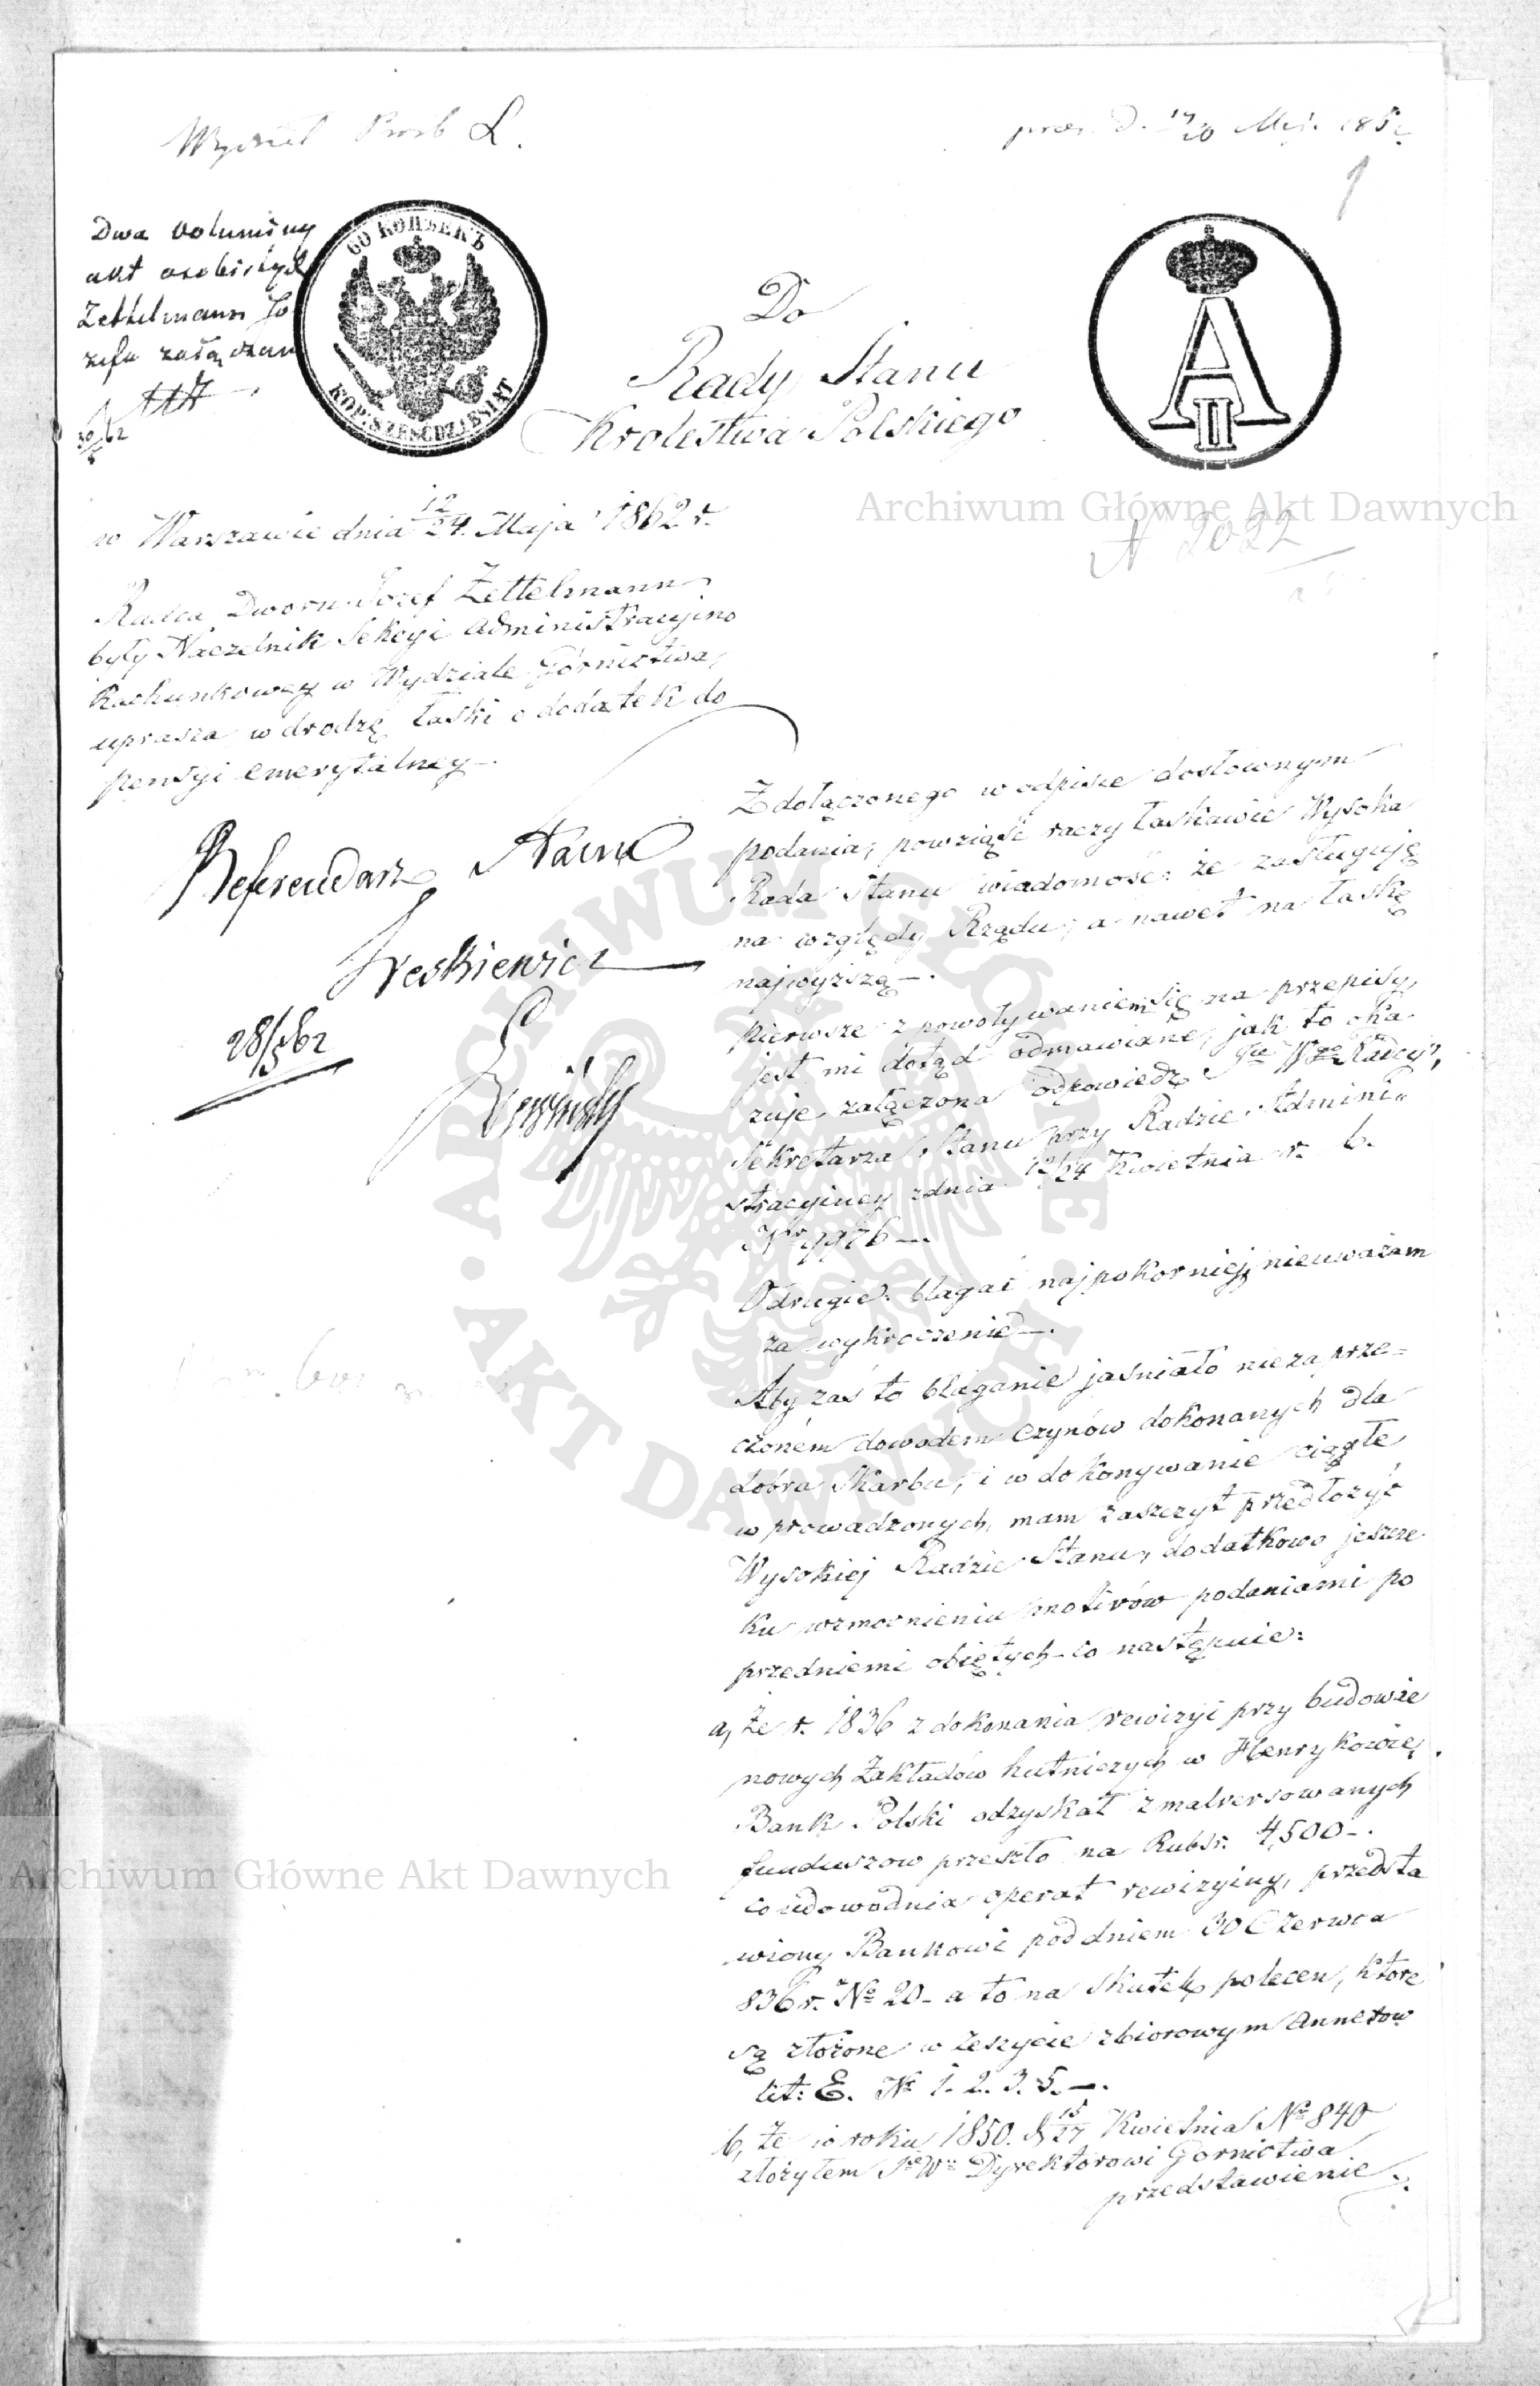 Wydział Prośb L.
Dwa volumina
akt osobistych
Zettelmann Jó
zefa załączam
30/5 62
60 КОПѢЕКЪ
KOP: SZEŚĆDZIESIĄT
A II
Do
Rady Stanu
Krolestwa Polskiego
w Warszawie dnia 12/24. Maja 1862 r.
N 2022
Radca Dworu Józef Zettelmann
były Naczelnik Sekcyi Administracyjno
Rachunkowey w Wydziale Górnictwa,
uprasza w drodze łaski o dodatek do
pensyi emerytalney.
Referendarz Stanu
28/5 862
Z dołączonego w odpisie dosłownym
podania, powziąść raczy łaskawie Wysoka
Rada Stanu wiadomość: że zasługuję
na względy Rządu, a nawet na łaskę
najwyższą.
Pierwsze z powoływaniem się na przepisy,
jest mi dotąd odmawiane, jak to oka
zuje załączona odpowiedź JW Radcy,
Sekretarza Stanu przy Radzie Admini
stracyjney z dnia 12/24 Kwietnia r. b.
Nr 9976
O drugie: błagać najpokorniej, nieuważam
za wykroczenie.
Aby zaś to błaganie jaśniało niezaprze=
czoném dowodem czynów dokonanych dla
dobra Skarbu, i w dokonywanie ciągłe
wprowadzonych, mam zaszczyt przedłożyć
Wysokiej Radzie Stanu, dodatkowo jeszcze
ku wzmocnieniu motivów podaniami po
przedniemi objętych co następuie:
a, że r. 1836 z dokonania rewizyi przy budowie
nowych Zakładów hutniczych w Henrykowie,
Bank Polski odzyskał zmalversowanych
funduszow przeszło na Rubsr. 4,500.
co udowodnia operat rewizyiny, przedsta
wiony Bankowi pod dniem 30 Czerwca
836 r. No 20 a to na skutek polecen, które
są złożone w Zeszycie zbiorowym Annexow
lit: E. No 1. 2. 3. 5.
b, że w roku 1850. d 15/27 Kwietnia No 840
złożyłem JW Dyrektorowi Gornictwa
przedstawienie
Archiwum Główne Akt Dawnych
ARCHIWUM GŁÓWNE · AKT DAWNYCH ·
Archiwum Główne Akt Dawnych